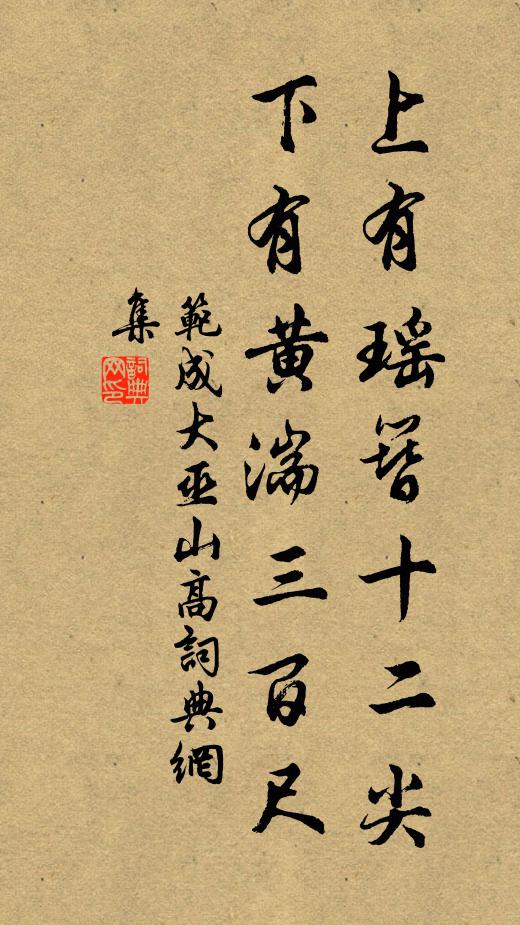 上有瑶簪十二尖
下有黄湍三百尺
範成大巫山高詞典網
集
詞典網印